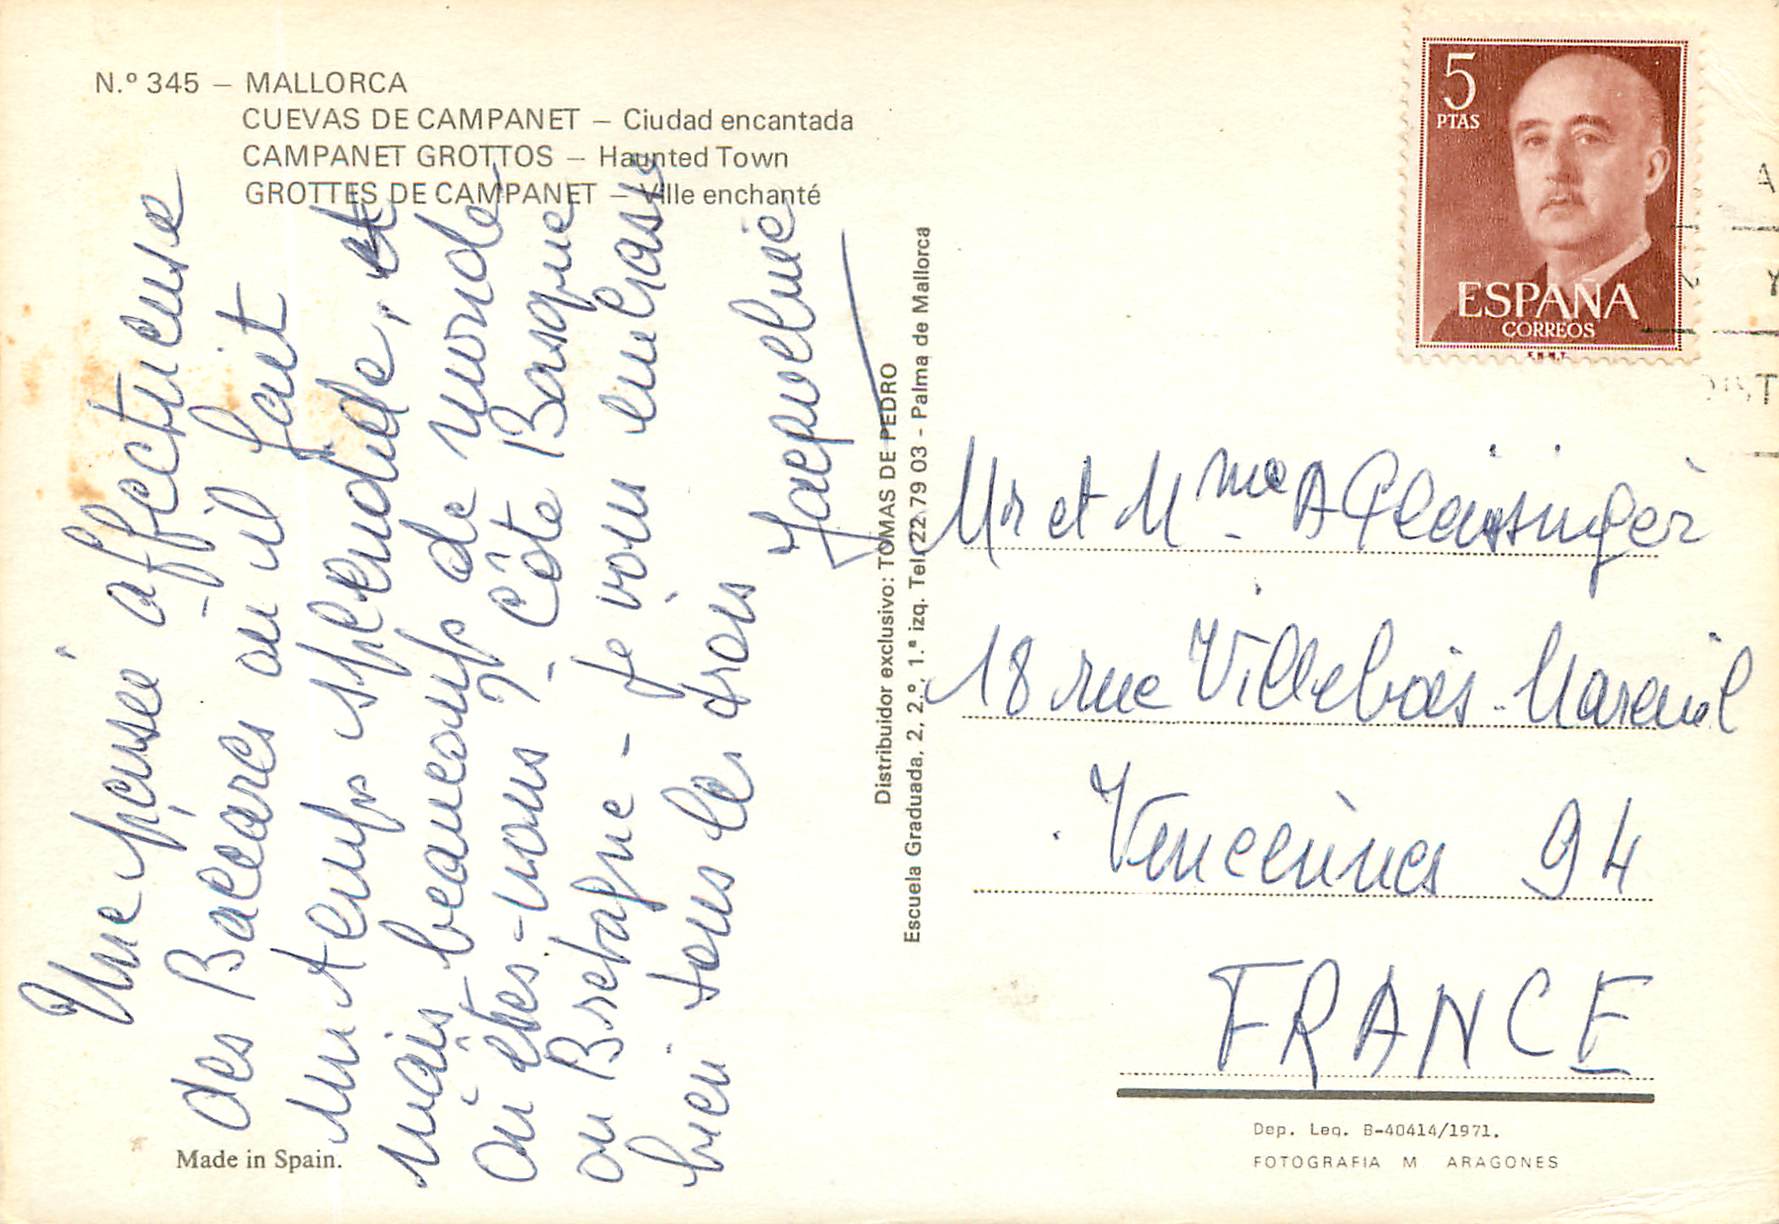 N.º 345 — MALLORCA
CUEVAS DE CAMPANET — Ciudad encantada
CAMPANET GROTTOS — Haunted Town
GROTTES DE CAMPANET — Ville enchanté
Une pensée affectueuse
des Baléares où il fait
un temps splendide, et
mais beaucoup de monde
où êtes-vous ? Côte Basque
ou Bretagne - je vous embrasse
bien tous les trois
Jacqueline
Made in Spain.
Distribuidor exclusivo: TOMAS DE PEDRO
Escuela Graduada, 2, 2.º, 1.ª izq. Tel. 22 79 03 - Palma de Mallorca
5
PTAS
ESPAÑA
CORREOS
F.N.M.T.
Mr et Mme A Pleissinger
18 rue Villebois-Mareuil
Vincennes 94
FRANCE
Dep. Leg. B-40414/1971.
FOTOGRAFIA M ARAGONES